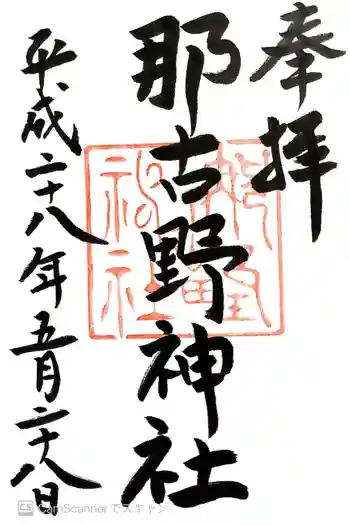 奉拝
那古野神社
平成二十八年五月二十八日
CS CamScannerでスキャン